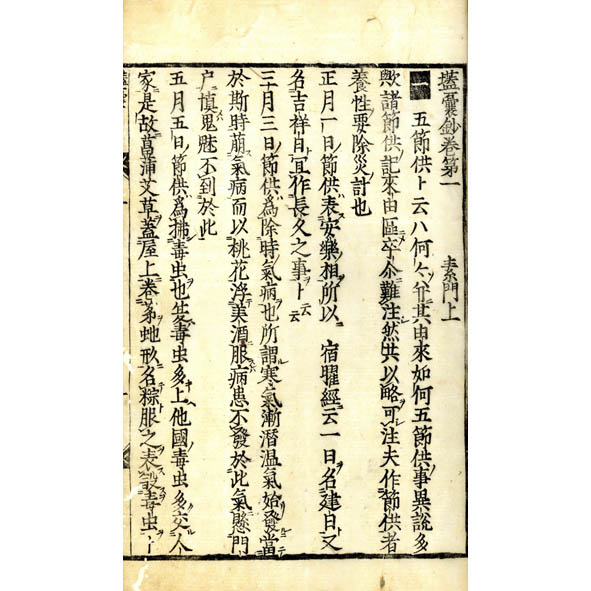 壒囊鈔卷第一 素門上
一 五節供ト云ハ何々ソ并其由來如何五節供ノ事異說多
歟諸節供ノ記來由區ニメ卒尒難注然共以略可注夫作節供者
養性ノ要除災ノ計也
正月一日ノ節供ハ表安樂相所以ニ 宿曜經云一日ヲ名建日ト又
名吉祥日ト宜作長久之事ト云云
三月三日ノ節供ハ爲除時氣病也所謂寒氣漸潛温氣始發當
於斯時崩氣病而以桃花浮美酒服病患不發於此氣懸門
户慎鬼魅不到於此
五月五日ノ節供ハ爲捕毒虫也毒虫多上他國毒虫多交人
家是故菖蒲艾草蓋屋上卷茅虵形名粽服之表毒虫